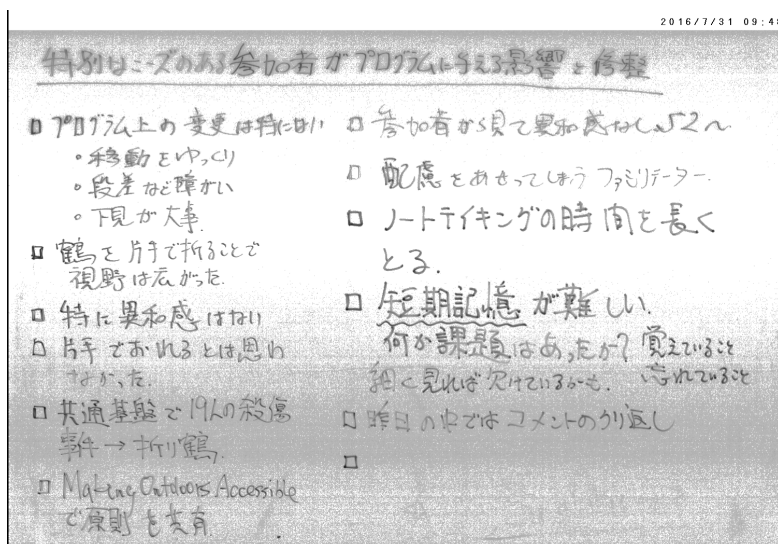 2016/7/31 09:48
特別なニーズのある参加者がプログラムに与える影響と
□ プログラム上の変更は特にない
・移動をゆっくり
・段差など障がい
・下見が大事
□ 鶴を片手で折ることで
視野は広がった
□ 特に異和感はない
□ 片手でおれるとは思わ
なかった.
□ 共通基盤で19人の殺傷
事件→折り鶴
□ Making Outdoors Accessible
で原則を共有
□ 参加者から見て異和感なし、52〜
□ 配慮をあせってしまうファシリテーター.
□ ノートテイキングの時間を長く
とる.
□ 短期記憶が難しい.
何か課題はあったか? 覚えていること
細く見れば欠けているかも. 忘れていること
□ 昨日の中ではコメントのくり返し
□